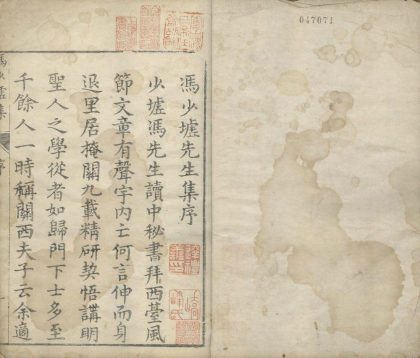 047071
馮少墟先生集序
少墟馮先生讀中秘書拜西臺風
節文章有聲宇内亡何言伸而身
退里居掩關九載精研契悟講明
聖人之學從者如歸門下士多至
千餘人一時稱關西夫子云余適
馮少墟集
序